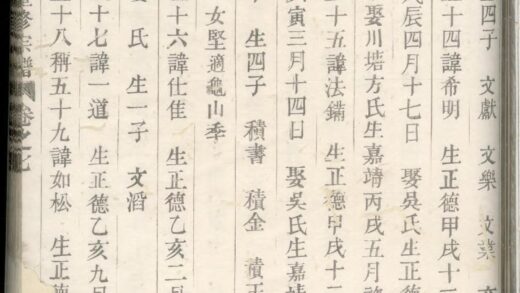 生四子 文獻 文樂 文業
十四諱希明 生正德甲戌十二
戊辰四月十七日 娶吳氏生正德
娶川塘方氏生嘉靖丙戌五月
十五諱法鏋 生正德甲戌十二
寅三月十四日 娶吳氏生嘉靖
生四子 積書 積金 積玉
女堅適龜山季
十六諱仕隹 生正德乙亥二月
氏 生一子 文滔
十七諱一道 生正德乙亥九月
三十八稱五十九諱如松 生正德
重修宗譜 卷之七